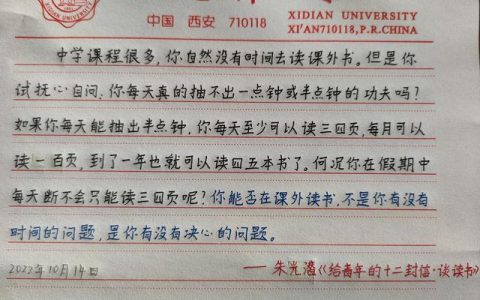 中国 西安 710118
XIDIAN UNIVERSITY
XI'AN710118,P.R.CHINA
中学课程很多，你自然没有时间去读课外书。但是你
试抚心自问，你每天真的抽不出一点钟或半点钟的功夫吗？
如果你每天能抽出半点钟，你每天至少可以读三四页，每月可以
读一百页，到了一年也就可以读四五本书了。何况你在假期中
每天断不会只能读三四页呢？你能否在课外读书，不是你有没有
时间的问题，是你有没有决心的问题。
2022年10月14日
——朱光潜《给青年的十二封信·谈读书》